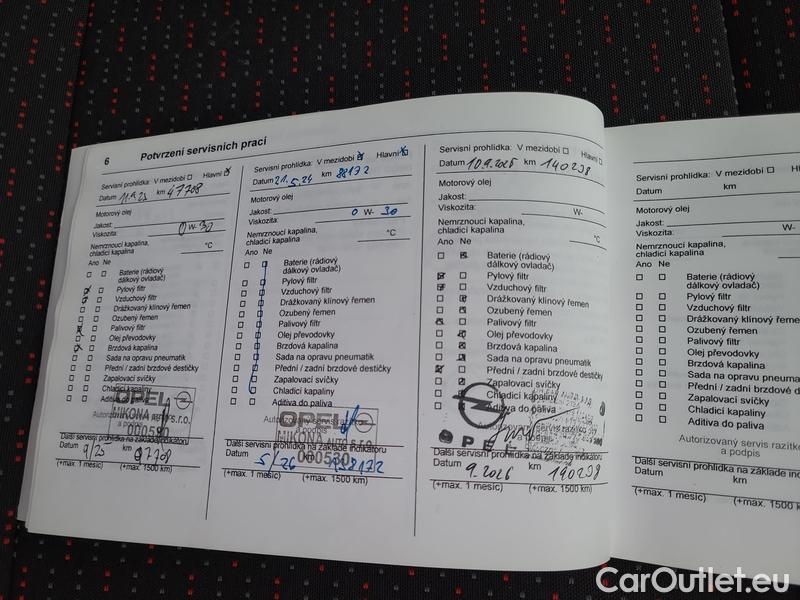 6 Potvrzení servisních prací
Servisní prohlídka: V mezidobí Hlavní
Datum 11.9.23 km 47708
Motorový olej
Jakost:
Viskozita: 0 W-30
Nemrznoucí kapalina,
chladicí kapalina °C
Ano Ne
Baterie (rádiový
dálkový ovladač)
Pylový filtr
Vzduchový filtr
Drážkovaný klínový řemen
Ozubený řemen
Palivový filtr
Olej převodovky
Brzdová kapalina
Sada na opravu pneumatik
Přední / zadní brzdové destičky
Zapalovací svíčky
Chladicí kapaliny
Aditiva do paliva
Autorizovaný servis razítko
a podpis
OPEL
NIKONA AUTO s.r.o.
000530
Další servisní prohlídka na základě indikátoru
Datum km
9/25
(+max. 1 měsíc) (+max. 1500 km)
Servisní prohlídka: V mezidobí Hlavní
Datum 21.5.24 km 88172
Motorový olej
Jakost:
Viskozita: 0 W- 30
Nemrznoucí kapalina,
chladicí kapalina °C
Ano Ne
Baterie (rádiový
dálkový ovladač)
Pylový filtr
Vzduchový filtr
Drážkovaný klínový řemen
Ozubený řemen
Palivový filtr
Olej převodovky
Brzdová kapalina
Sada na opravu pneumatik
Přední / zadní brzdové destičky
Zapalovací svíčky
Chladicí kapaliny
Aditiva do paliva
Autorizovaný servis razítko
a podpis
OPEL
NIKONA AUTO s.r.o.
000530
Další servisní prohlídka na základě indikátoru
Datum km
5/26
(+max. 1 měsíc) (+max. 1500 km)
Servisní prohlídka: V mezidobí Hlavní
Datum 10.9.2025 km 140298
Motorový olej
Jakost:
Viskozita: W-
Nemrznoucí kapalina,
chladicí kapalina °C
Ano Ne
Baterie (rádiový
dálkový ovladač)
Pylový filtr
Vzduchový filtr
Drážkovaný klínový řemen
Ozubený řemen
Palivový filtr
Olej převodovky
Brzdová kapalina
Sada na opravu pneumatik
Přední / zadní brzdové destičky
Zapalovací svíčky
Chladicí kapaliny
Aditiva do paliva
OPEL
a podpis
Další servisní prohlídka na základě indikátoru
Datum km
9.2026 140298
(+max. 1 měsíc) (+max. 1500 km)
Servisní prohlídka: V mezidobí Hlavní
Datum km
Motorový olej
Jakost:
Viskozita: W-
Nemrznoucí kapalina,
chladicí kapalina
Ano Ne
Baterie (rádiový
dálkový ovladač)
Pylový filtr
Vzduchový filtr
Drážkovaný klínový řemen
Ozubený řemen
Palivový filtr
Olej převodovky
Brzdová kapalina
Sada na opravu pneuma
Přední / zadní brzdové
Zapalovací svíčky
Chladicí kapaliny
Aditiva do paliva
Autorizovaný servis razítk
a podpis
Další servisní prohlídka na základě ind
Datum km
(+max. 1 měsíc) (+max. 1500 k
CarOutlet.eu